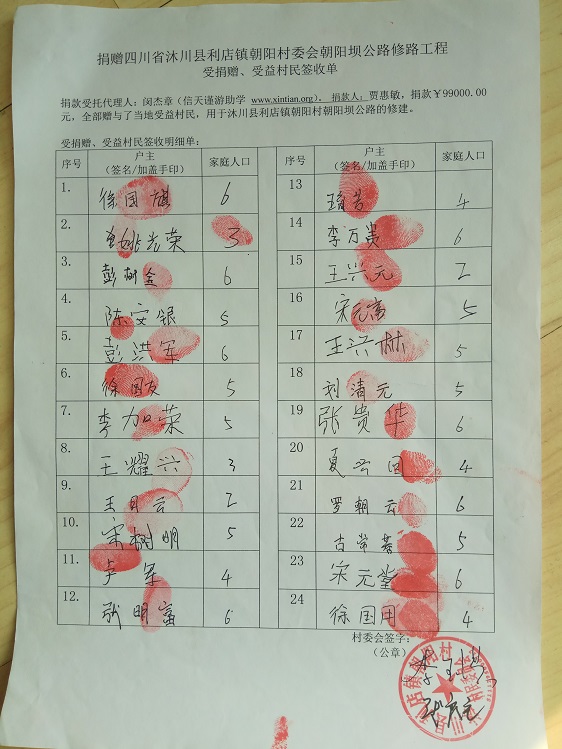 捐赠四川省沐川县利店镇朝阳村委会朝阳坝公路修路工程
受捐赠、受益村民签收单
捐款受托代理人：闵杰章（信天谨游助学 www.xintian.org)。捐款人：贾惠敏，捐款￥99000.00
元，全部赠与了当地受益村民，用于沐川县利店镇朝阳村朝阳坝公路的修建。
受捐赠、受益村民签收明细单：
序号 户主（签名/加盖手印） 家庭人口 序号 户主（签名/加盖手印） 家庭人口
1. 徐国旗 6 13 4
2. 姚光荣 3 14 李万贵 6
3. 彭树金 6 15 王兴元 2
4. 陈安银 5 16 宋元富 5
5. 彭洪军 6 17 王兴林 5
6. 徐国友 5 18 刘清元 5
7. 李加荣 5 19 张贵华 6
8. 王耀兴 3 20 夏云国 4
9. 王月云 2 21 罗朝云 6
10. 宋树明 5 22 古常 5
11. 卢军 4 23 宋元堂 6
12. 张明富 6 24 徐国田 4
村委会签字：
（公章）